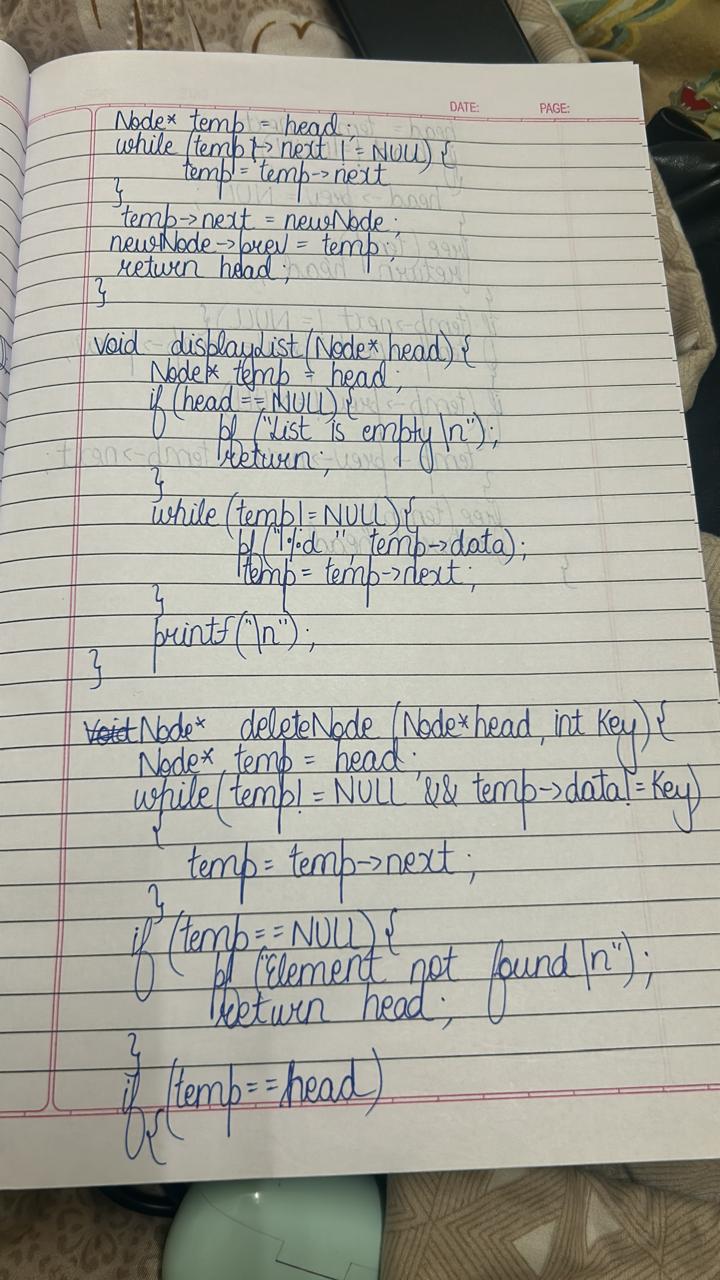 DATE: PAGE:
Node* temp = head;
while (temp->next != NULL) {
temp = temp->next
}
temp->next = newNode;
newNode->prev = temp;
return head;
}
void displayList (Node* head) {
Node* temp = head;
if (head == NULL) {
pf ("List is empty \n");
return;
}
while (temp != NULL) {
pf ("%d ", temp->data);
temp = temp->next;
}
printf ("\n");
}
Void Node* deleteNode (Node* head, int Key) {
Node* temp = head;
while (temp != NULL && temp->data != Key)
{
temp = temp->next;
}
if (temp == NULL) {
pf ("Element not found \n");
return head;
}
if (temp == head)
{